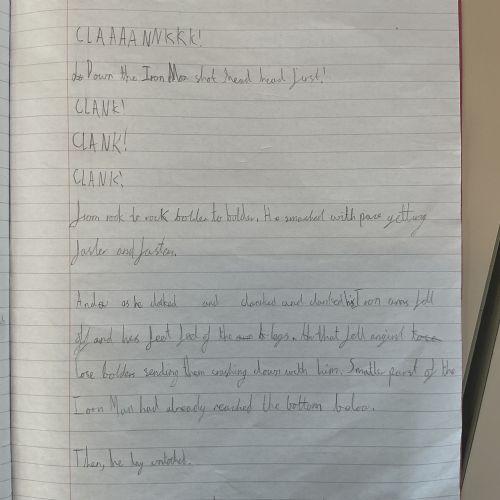 CLAAAANNKKK!
Down the Iron Man shot head first!
CLANK!
CLANK!
CLANK!
from rock to rock bolder to bolder. He smached with pace getting
faster and faster.
And as he clanked and clanked and clanked his Iron arms fell
off and his feet of the legs. that fell
lose bolders sending them crashing down with him. Smaller parst of the
Iron Man had already reached the bottom below.
Then, he lay